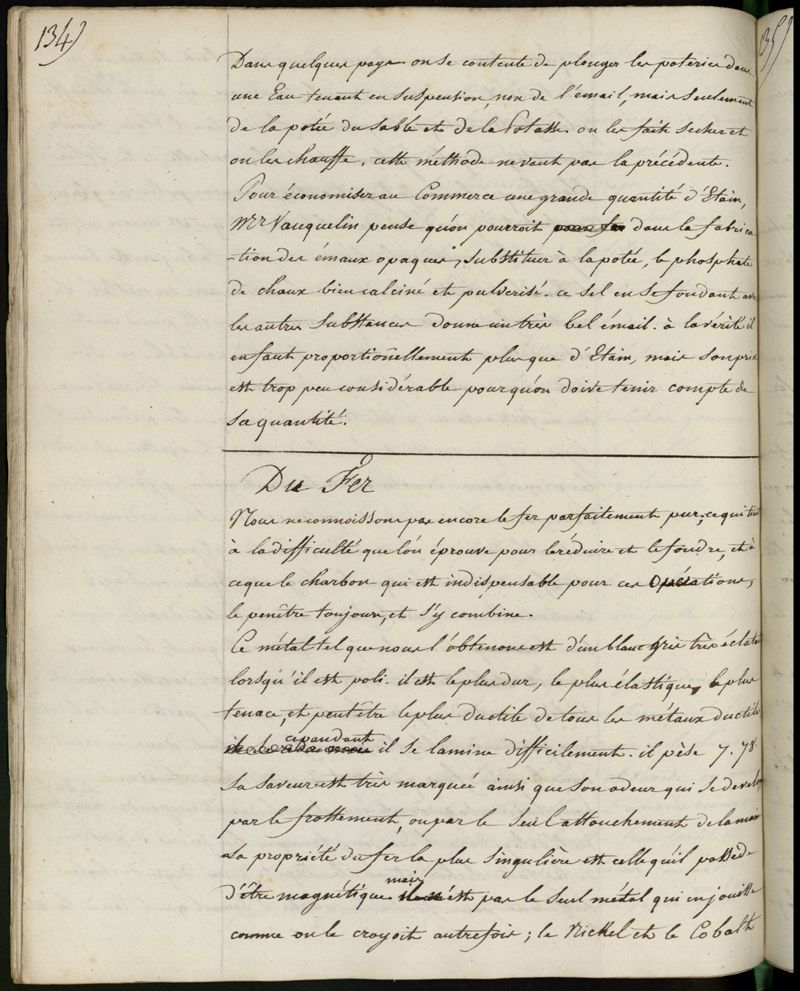 134)
135)
Dans quelques pays on se contente de plonger les poteries dans
une Eau tenant en suspension, non de l'émail, mais seulement
de la potée du sable et de la Potasse. on les fait secher et
on les chauffe. cette méthode ne vaut pas la précédente.
Pour économiser au Commerce une grande quantité d'Etain,
Mr. Vauquelin pense qu'on pourroit dans la fabrica
-tion des émaux opaques, substituer à la potée, le phosphate
de chaux bien calciné et pulverisé. ce sel en se fondant avec
les autres substances donne un très bel émail. à la vérité il
en faut proportionellement plus que d'Etain, mais son prix
est trop peu considérable pour qu'on doive tenir compte de
sa quantité.
Du Fer
Nous ne connoissons pas encore le fer parfaitement pur, ce qui tient
à la difficulté que l'on éprouve pour le réduire et le fondre, et à
ce que le charbon qui est indispensable pour ces Opérations,
le penêtre toujours, et s'y combine.
Ce métal tel que nous l'obtenons est d'un blanc gris très éclatant
lorsqu'il est poli. il est le plus dur, le plus élastique, le plus
tenace, et peut être le plus ductile de tous les métaux ductiles
cependant il se lamine difficilement. il pèse 7.78.
sa saveur est très marquée ainsi que son odeur qui se developpe
par le frottement, ou par le seul attouchement de la main
La propriété du fer la plus singulière est celle qu'il possède
d'être magnétique mais n'est pas le seul métal qui en jouisse
comme on le croyoit autrefois ; le Nickel et le Cobalt